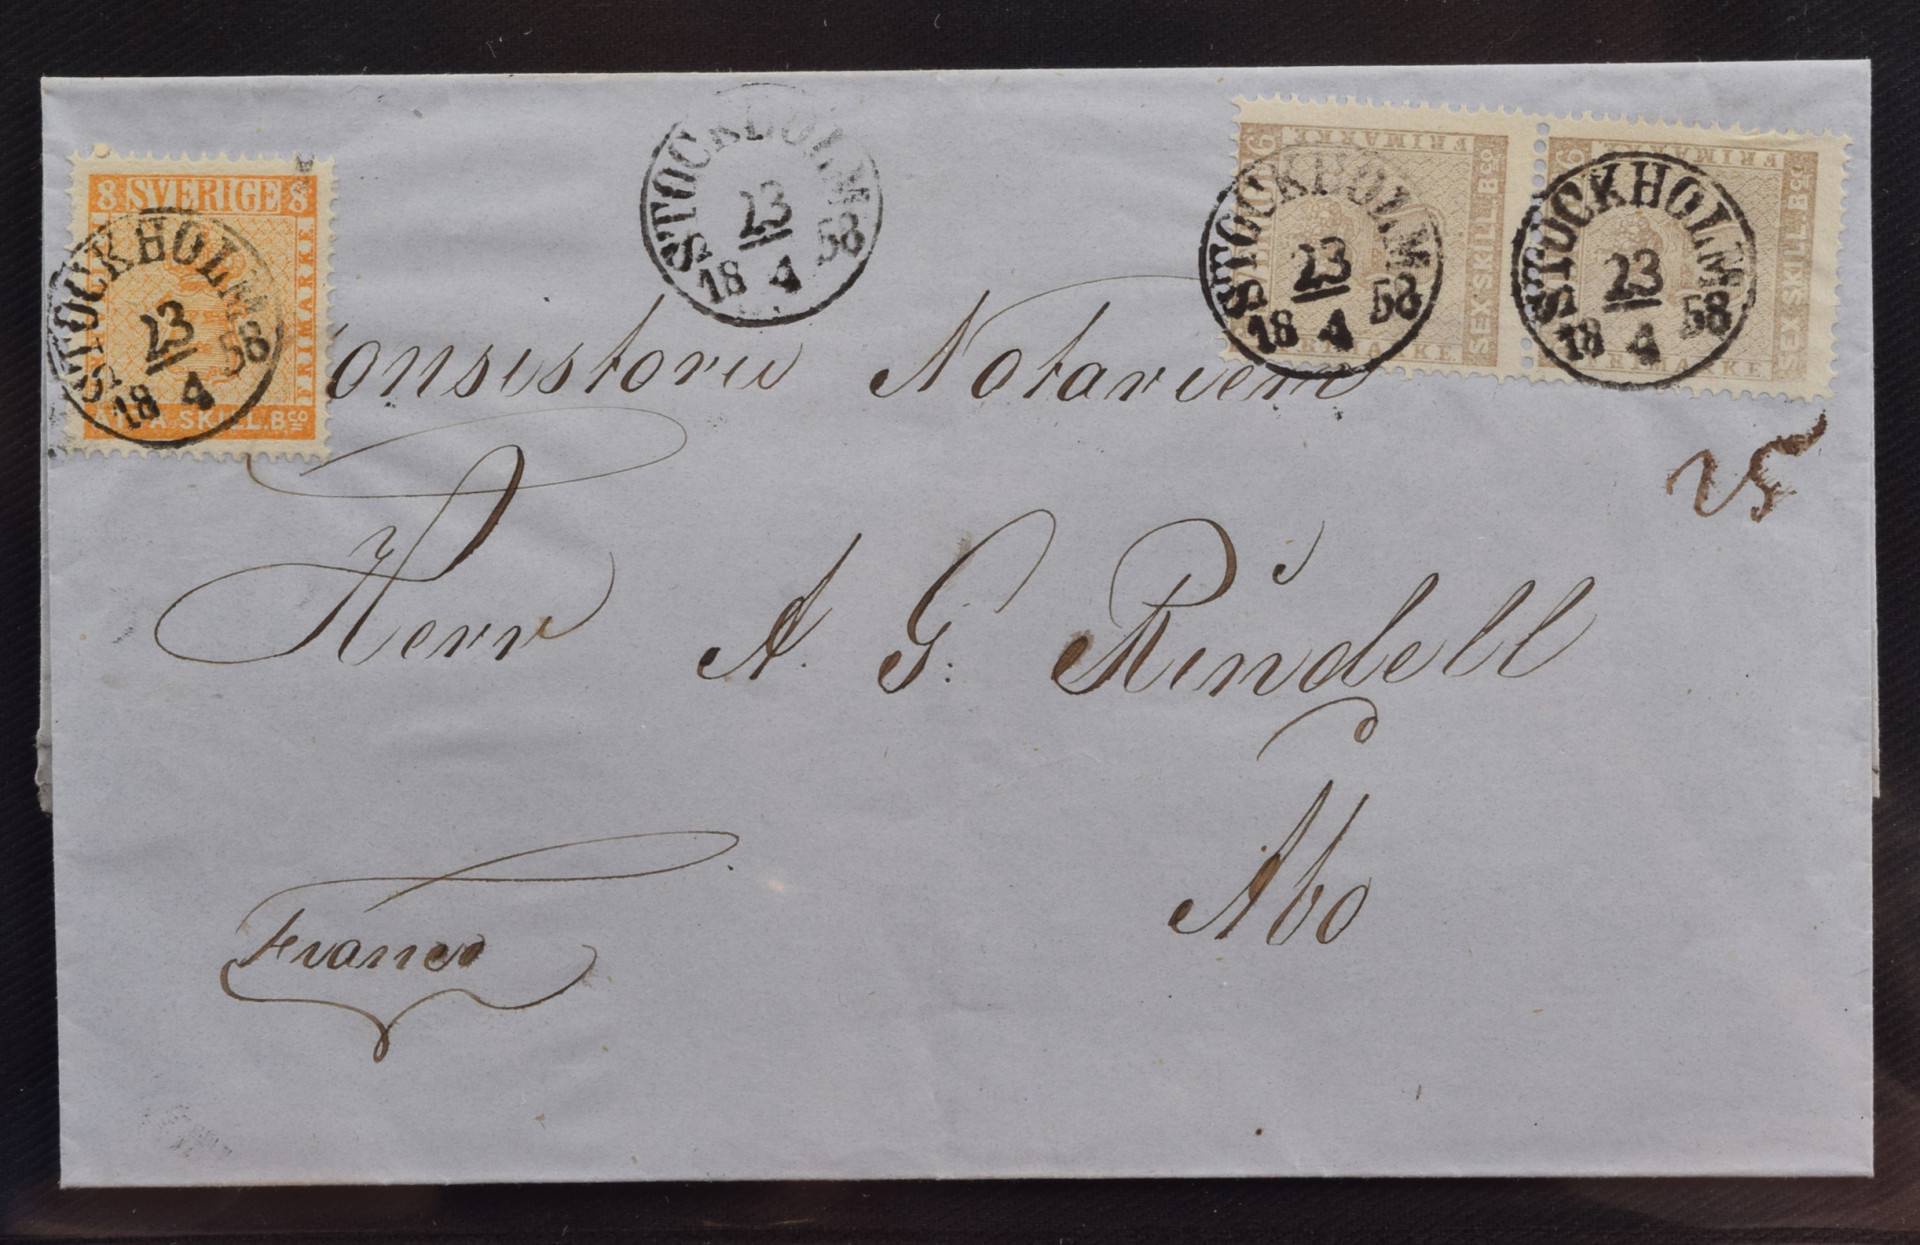 8 SVERIGE 8
FRIMARKE
SKILL. Bco
STOCKHOLM
23
18 4 58
STOCKHOLM
23
18 4 58
6 FRIMARKE
SEX SKILL. Bco
FRIMARKE
STOCKHOLM
23
18 4 58
6 FRIMARKE
SEX SKILL. Bco
FRIMARKE
STOCKHOLM
23
18 4 58
onsistorie Notarien
25
Herr A. G. Rindell
Abo
Franco